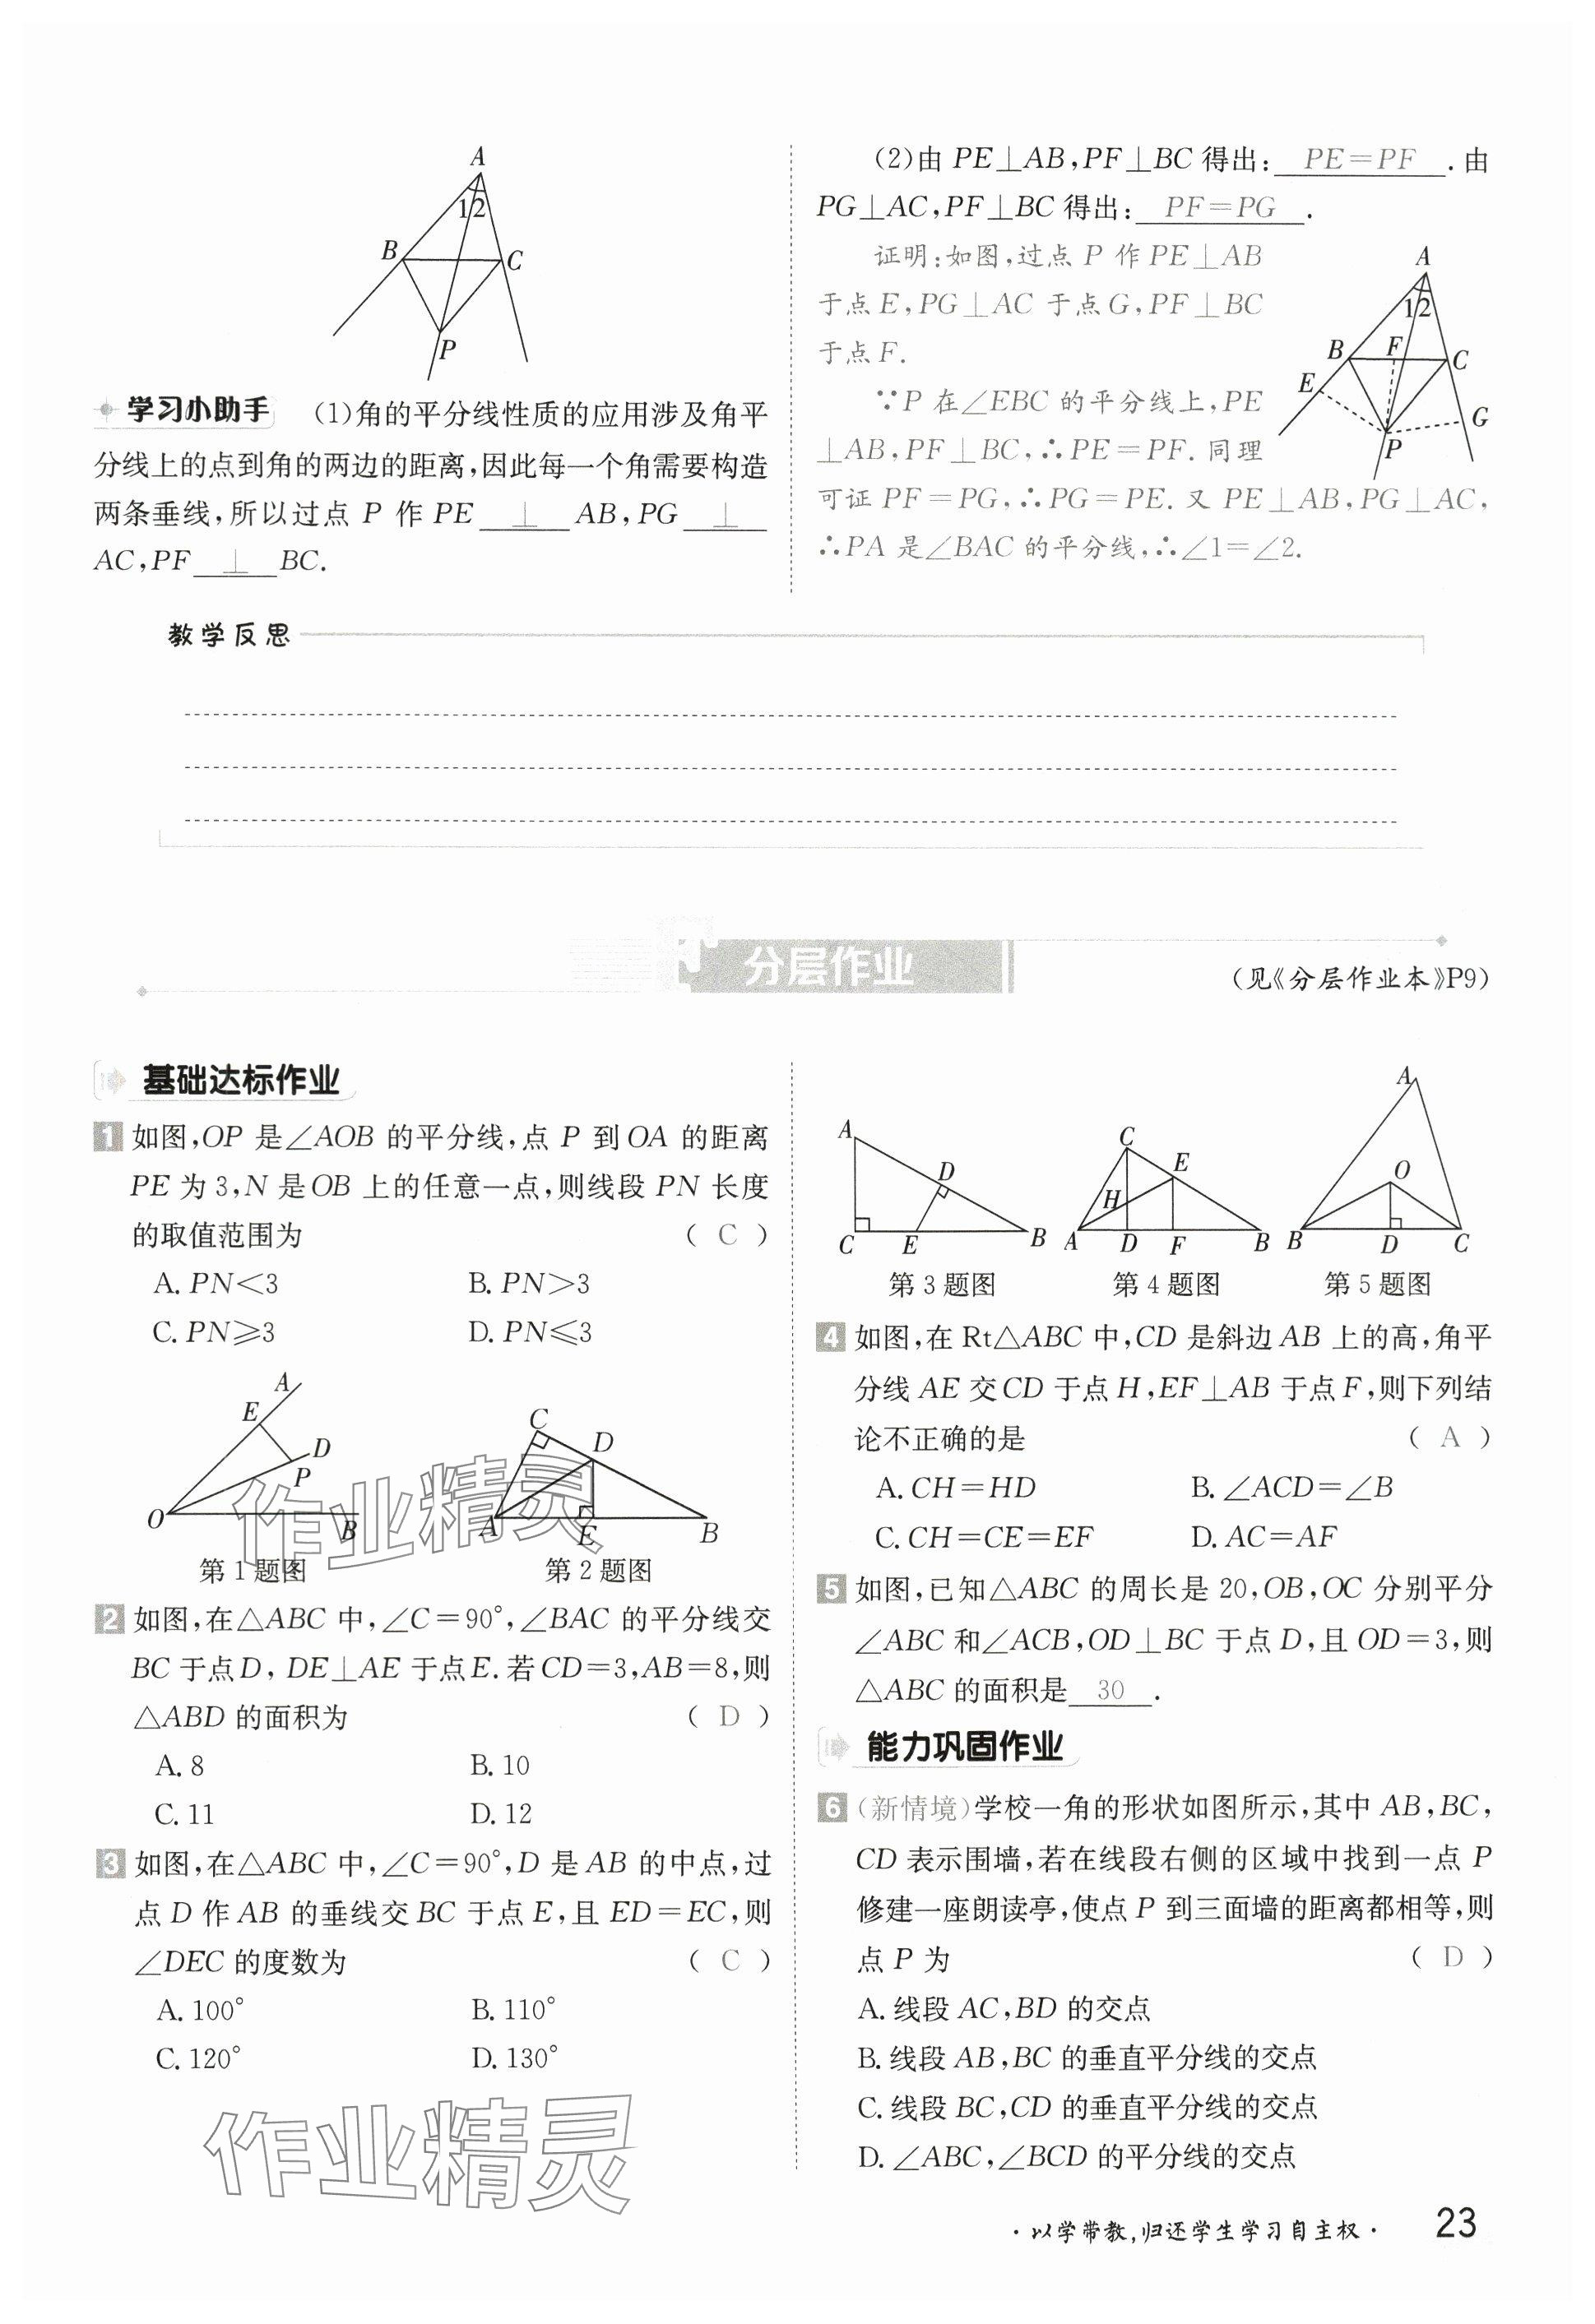 A
12
B
C
P
学习小助手 (1)角的平分线性质的应用涉及角平
分线上的点到角的两边的距离,因此每一个角需要构造
两条垂线,所以过点 P 作 PE ⊥ AB,PG ⊥
AC,PF ⊥ BC.
(2)由 PE⊥AB,PF⊥BC 得出: PE=PF .由
PG⊥AC,PF⊥BC 得出: PF=PG .
证明:如图,过点 P 作 PE⊥AB
于点 E,PG⊥AC 于点 G,PF⊥BC
于点 F.
∵P 在∠EBC 的平分线上,PE
⊥AB,PF⊥BC,∴PE=PF.同理
可证 PF=PG,∴PG=PE.又 PE⊥AB,PG⊥AC,
∴PA 是∠BAC 的平分线,∴∠1=∠2.
A
12
B F C
E
G
P
教学反思
分层作业
(见《分层作业本》P9)
基础达标作业
1 如图,OP 是∠AOB 的平分线,点 P 到 OA 的距离
PE 为 3,N 是 OB 上的任意一点,则线段 PN 长度
的取值范围为 ( C )
A. PN<3 B. PN>3
C. PN≥3 D. PN≤3
A
E
D
P
O B
C
D
A E B
第 1 题图 第 2 题图
2 如图,在△ABC 中,∠C=90°,∠BAC 的平分线交
BC 于点 D, DE⊥AE 于点 E.若 CD=3,AB=8,则
△ABD 的面积为 ( D )
A. 8 B. 10
C. 11 D. 12
3 如图,在△ABC 中,∠C=90°,D 是 AB 的中点,过
点 D 作 AB 的垂线交 BC 于点 E,且 ED=EC,则
∠DEC 的度数为 ( C )
A. 100° B. 110°
C. 120° D. 130°
A
D
C E B
C
E
H
A D F B
A
O
B D C
第 3 题图 第 4 题图 第 5 题图
4 如图,在 Rt△ABC 中,CD 是斜边 AB 上的高,角平
分线 AE 交 CD 于点 H,EF⊥AB 于点 F,则下列结
论不正确的是 ( A )
A. CH=HD B. ∠ACD=∠B
C. CH=CE=EF D. AC=AF
5 如图,已知△ABC 的周长是 20,OB,OC 分别平分
∠ABC 和∠ACB,OD⊥BC 于点 D,且 OD=3,则
△ABC 的面积是 30 .
能力巩固作业
6 (新情境)学校一角的形状如图所示,其中 AB,BC,
CD 表示围墙,若在线段右侧的区域中找到一点 P
修建一座朗读亭,使点 P 到三面墙的距离都相等,则
点 P 为 ( D )
A. 线段 AC,BD 的交点
B. 线段 AB,BC 的垂直平分线的交点
C. 线段 BC,CD 的垂直平分线的交点
D. ∠ABC,∠BCD 的平分线的交点
作业精灵
作业精灵
·以学带教,归还学生学习自主权· 23